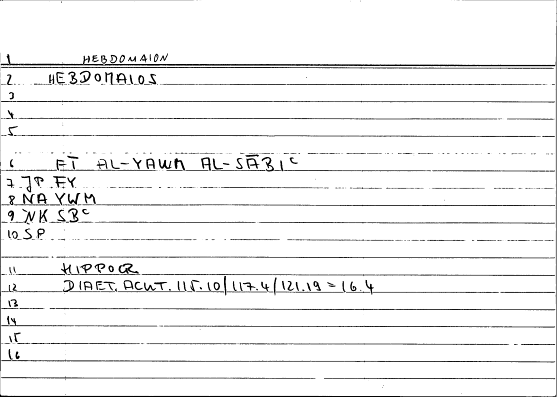 1 HEBDOMAION
2 HEBDOMAIOS
3
4
5
6 FĪ AL-YAWM AL-SĀBIᶜ
7 JP FY
8 NA YWM
9 NK SBᶜ
10 SP
11 HIPPOCR.
12 DIAET. ACUT. 115.10/117.4/121.19=16.4
13
14
15
16